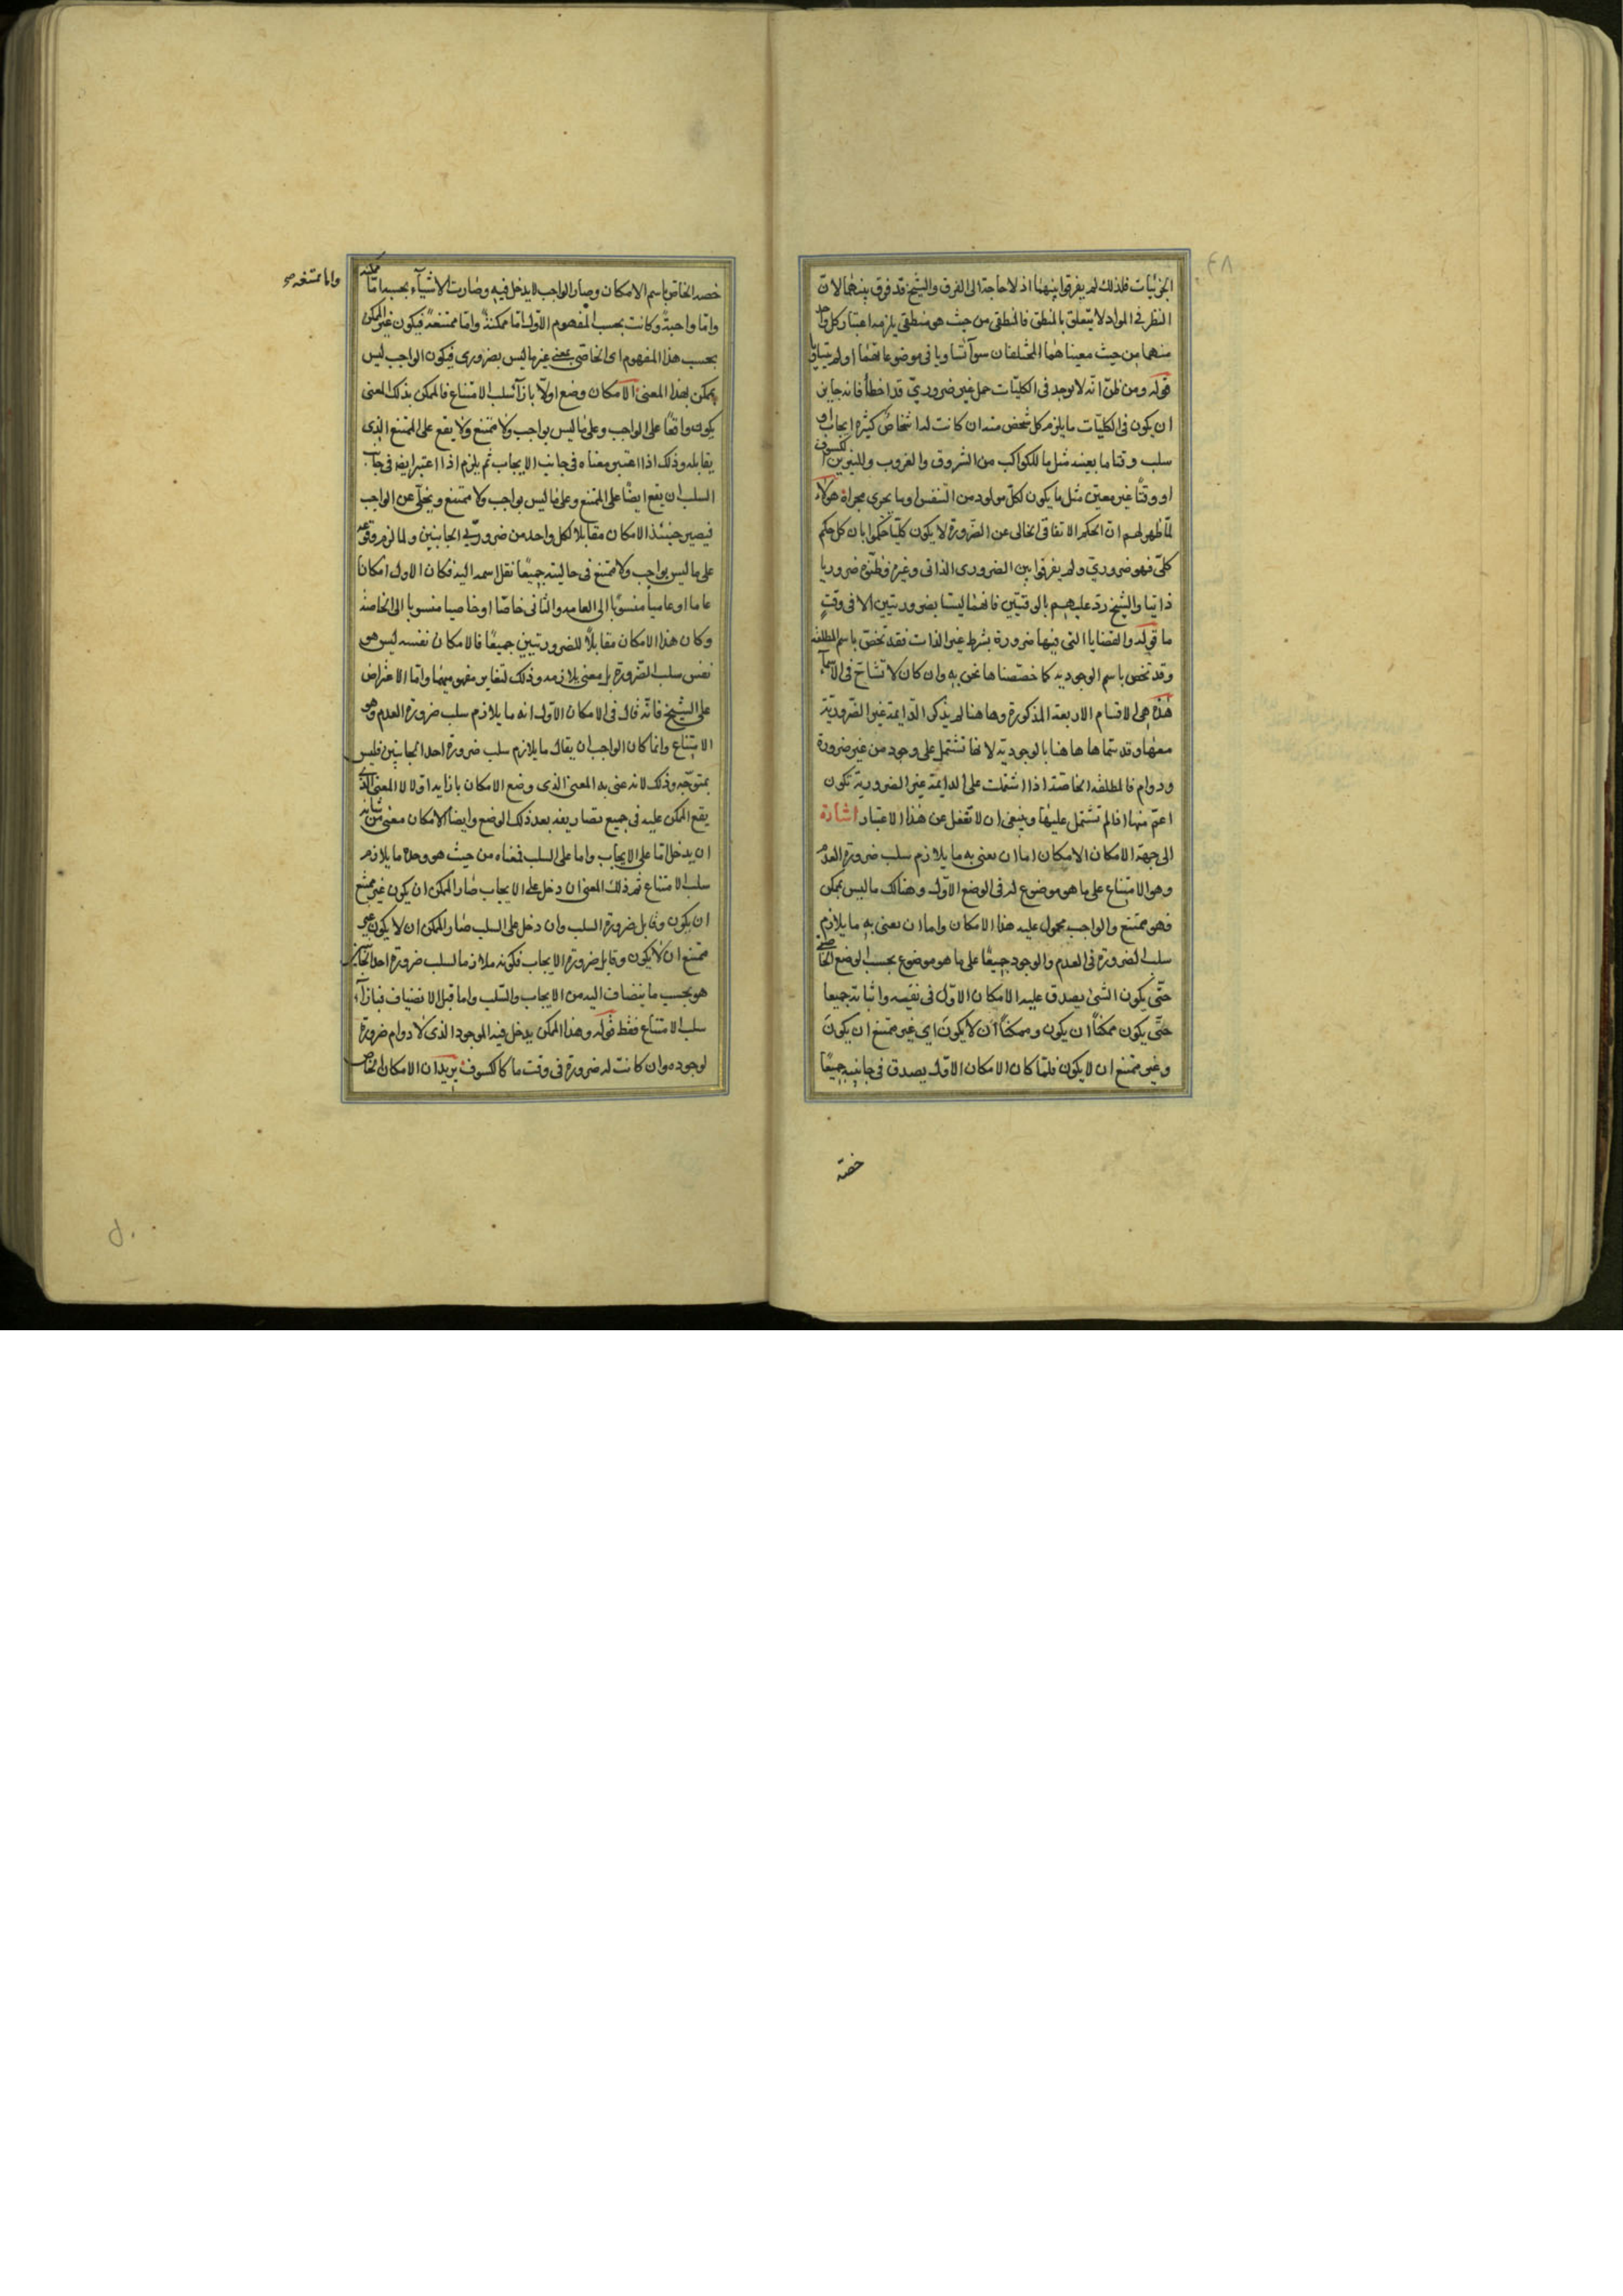 ٤٨
الجزئیات فلذلك لم یفرقوا بینهما اذ لا حاجة الی الفرق والشیخ قد فرق بینهما لان
النظر فی المواد لا یتعلق بالمنطق فالمنطقی من حیث هو منطقی یلزمه اعتبار کل واحد
منهما من حیث معیناهما المختلفان سوآء تساویا فی موضوعاتهما او لم یتساویا
قوله ومن ظن انه لا یوجد فی الکلیات حمل غیر ضروری قد اخطأ فانه جایز
ان یکون فی الکلیات ما یلزم کل شخص منه ان کانت له اشخاص کثیرة ایجاب او
سلب وقتا ما بعینه مثل ما للکواکب من الشروق والغروب وللنیرین الکسوف
او وقتا غیر معین مثل ما یکون لکل مولود من التنفس او ما یجری مجراه هولاء
لما ظهر لهم ان الحکم الاتفاقی الخالی عن الضرورة لا یکون کلیا حکموا بان کل حکم
کلی فهو ضروری ولم یفرقوا بین الضروری الذاتی وغیره فظنوه ضروریا
ذاتیا والشیخ رد علیهم بالوقتیین فانهما لیستا بضروریتین الا فی وقت
ما قوله والقضایا التی فیها ضرورة بشرط غیر الذات فقد تخص باسم المطلقة
وقد تخص باسم الوجودیه کما خصصناها نحن به وان کان لا تشاح فی الاسمآء
هذه هی الاقسام الاربعة المذکورة وهاهنا لم یذکر الدایمة غیر الضروریة
معها وقد سماها هاهنا بالوجودیة لانها تشتمل علی وجود من غیر ضرورة
ودوام فالمطلقه الخاصة اذا اشتملت علی الدایمة غیر الضروریة تکون
اعم منها اذا لم تشتمل علیها وینبغی ان لا تغفل عن هذا الاعتبار اشارة
الی جهة الامکان الامکان اما ان یعنی به ما یلازم سلب ضرورة العدم
وهو الامتناع علی ما هو موضوع له فی الوضع الاول وهنالک ما لیس بممکن
فهو ممتنع والواجب محمول علیه هذا الامکان واما ان یعنی به ما یلازم
سلب الضرورة فی العدم والوجود جمیعا علی ما هو موضوع بحسب الوضع الخاصی
حتی یکون الشئ یصدق علیه الامکان الاول فی نفیه واثباته جمیعا
حتی یکون ممکنا ان یکون وممکنا ان لا یکون ای غیر ممتنع ان یکون
وغیر ممتنع ان لا یکون فلما کان الامکان الاول یصدق فی جانبیه جمیعا
خصه
خصه الخاص باسم الامکان وصار الواجب لا یدخل فیه وصارت الاشیآء بحسبه اما ممکنه
واما ممتنعه صح
واما واجبة وکانت بحسب المفهوم الاول اما ممکنة واما ممتنعة فیکون غیر الممکن
بحسب هذا المفهوم ای الخاصی بمعنی غیر ما لیس بضروری فیکون الواجب لیس
بممکن بهذا المعنی الامکان وضع اولا بازآء سلب الامتناع فالممکن بذلک المعنی
یکون واقعا علی الواجب وعلی ما لیس بواجب ولا ممتنع ولا یقع علی الممتنع الذی
یقابله وذلک اذا اعتبر معناه فی جانب الایجاب ثم یلزم اذا اعتبر ایضا فی جانب
السلب ان یقع ایضا علی الممتنع وعلی ما لیس بواجب ولا ممتنع ویخلی عن الواجب
فیصیر حینئذ الامکان مقابلا لکل واحد من ضروریی الجانبین ولما لزم وقوعه
علی ما لیس بواجب ولا ممتنع فی حالیته جمیعا نقل اسمه الیه فکان الاول امکانا
عاما او عامیا منسوبا الی العامه والثانی خاصا او خاصیا منسوبا الی الخاصة
وکان هذا الامکان مقابلا للضرورتیین جمیعا فالامکان نفسه لیس هو
نفس سلب الضرورة بل معنی یلازمه وذلک لتغایر مفهومیهما واما الاعتراض
علی الشیخ فانه قال فی الامکان الاول انه ما یلازم سلب ضرورة العدم وهو
الامتناع وانما کان الواجب ان یقال ما یلازم سلب ضرورة احد الجانبین فلیس
بمتوجه وذلک لانه عنی به المعنی الذی وضع الامکان بازایه اولا لا المعنی الذی
یقع الممکن علیه فی جمیع تصاریفه بعد ذلک الوضع وایضا الامکان معنی من شانه
ان یدخل اما علی الایجاب واما علی السلب فمعناه من حیث هو وحده ما یلازم
سلب الامتناع ثم ذلک المعنی ان دخل علی الایجاب صار الممکن ان یکون غیر ممتنع
ان یکون وقابل ضرورة السلب وان دخل علی السلب صار الممکن ان لا یکون غیر
ممتنع ان لا یکون وقابل ضرورة الایجاب فکونه ملازما لسلب ضرورة احد الجانبین
هو بحسب ما ینضاف الیه من الایجاب والسلب واما قبل الانضیاف فبازآء
سلب الامتناع فقط قوله وهذا الممکن یدخل فیه الموجود الذی لا دوام ضرورة
لوجوده وان کانت له ضرورة فی وقت ما کالکسوف یرید ان الامکان الخاص